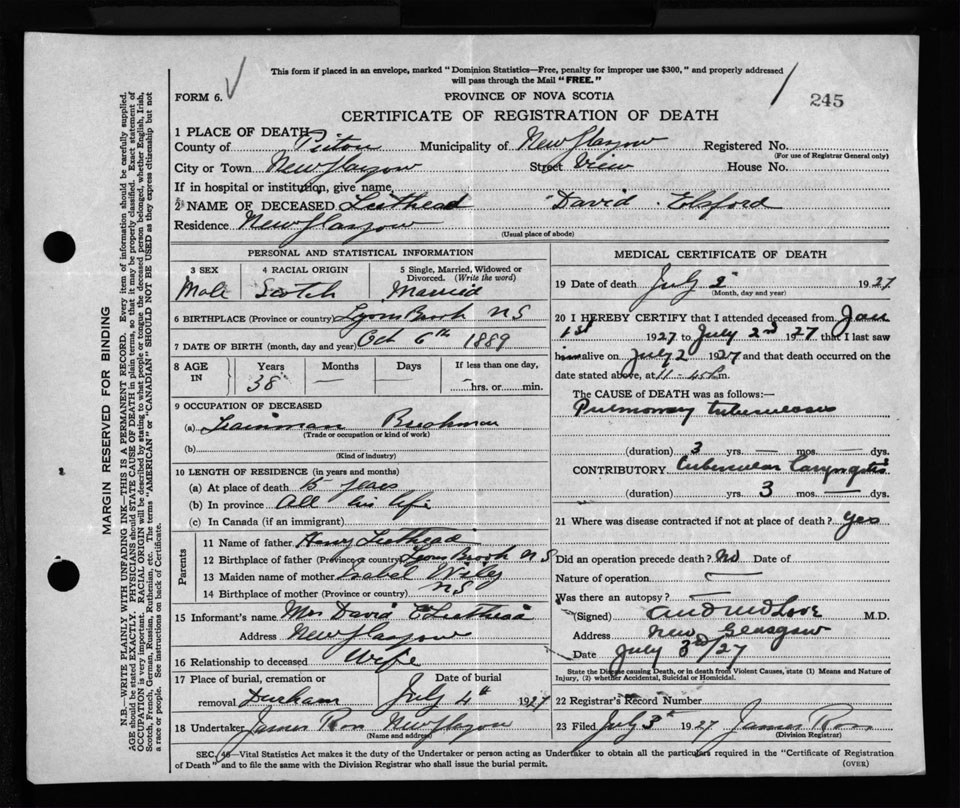 This form if placed in an envelope, marked "Dominion Statistics—Free, penalty for improper use $300," and properly addressed
will pass through the Mail "FREE."
FORM 6.
PROVINCE OF NOVA SCOTIA
245
CERTIFICATE OF REGISTRATION OF DEATH
1 PLACE OF DEATH
County of Pictou Municipality of New Glasgow Registered No.
(For use of Registrar General only)
City or Town New Glasgow Street View House No.
If in hospital or institution, give name
2 NAME OF DECEASED Leithead David Elsford
Residence New Glasgow
(Usual place of abode)
PERSONAL AND STATISTICAL INFORMATION
3 SEX 4 RACIAL ORIGIN 5 Single, Married, Widowed or Divorced. (Write the word)
Male Scotch Married
6 BIRTHPLACE (Province or country) Lyons Brook NS
7 DATE OF BIRTH (month, day and year) Oct 6th 1889
8 AGE IN Years Months Days If less than one day,
38 — — — hrs. or min.
9 OCCUPATION OF DECEASED
(a) Trainman Brakman
(Trade or occupation or kind of work)
(b)
(Kind of industry)
10 LENGTH OF RESIDENCE (in years and months)
(a) At place of death 15 years
(b) In province All his life
(c) In Canada (if an immigrant)
Parents
11 Name of father Henry Leithead
12 Birthplace of father (Province or country) Lyons Brook NS
13 Maiden name of mother Isabel
14 Birthplace of mother (Province or country) NS
15 Informant's name Mrs David E Leithead
Address New Glasgow
16 Relationship to deceased Wife
17 Place of burial, cremation or removal Date of burial
Durham July 4th 1927
18 Undertaker James Ross New Glasgow
(Name and address)
MEDICAL CERTIFICATE OF DEATH
19 Date of death July 2 1927
(Month, day and year)
20 I HEREBY CERTIFY that I attended deceased from Jan
1st 1927 to July 2nd 1927 that I last saw
him alive on July 2 1927 and that death occurred on
date stated above, at 11-45 P.m.
The CAUSE of DEATH was as follows:—
Pulmonary tuberculosis
(duration) 3 yrs. — mos. — dys.
CONTRIBUTORY tubercular laryngitis
(duration) yrs. 3 mos. — dys.
21 Where was disease contracted if not at place of death? yes
Did an operation precede death? No Date of
Nature of operation —
Was there an autopsy? —
(Signed) Andrew Love M.D.
Address New Glasgow
Date July 3rd/27
State the Disease causing Death, or in death from Violent Causes, state (1) Means and Nature of
Injury, (2) whether Accidental, Suicidal or Homicidal.
22 Registrar's Record Number
23 Filed July 3rd 1927 James Ross
(Division Registrar)
SEC. —Vital Statistics Act makes it the duty of the Undertaker or person acting as Undertaker to obtain all the particulars required in the "Certificate of Registration
of Death" and to file the same with the Division Registrar who shall issue the burial permit.
(OVER)
MARGIN RESERVED FOR BINDING
N.B.—WRITE PLAINLY WITH UNFADING INK—THIS IS A PERMANENT RECORD. Every item of information should be carefully supplied.
AGE should be stated EXACTLY. PHYSICIANS should STATE CAUSE OF DEATH in plain terms, so that it may be properly classified. Exact statement of
OCCUPATION is very important. RACIAL ORIGIN will be described by stating to what people or tongue the deceased person belonged, whether English, Irish,
Scotch, French, German, Russian, Ruthenian, etc. The terms "AMERICAN" or "CANADIAN" SHOULD NOT BE USED as they express citizenship but not
a race or people. See instructions on back of Certificate.